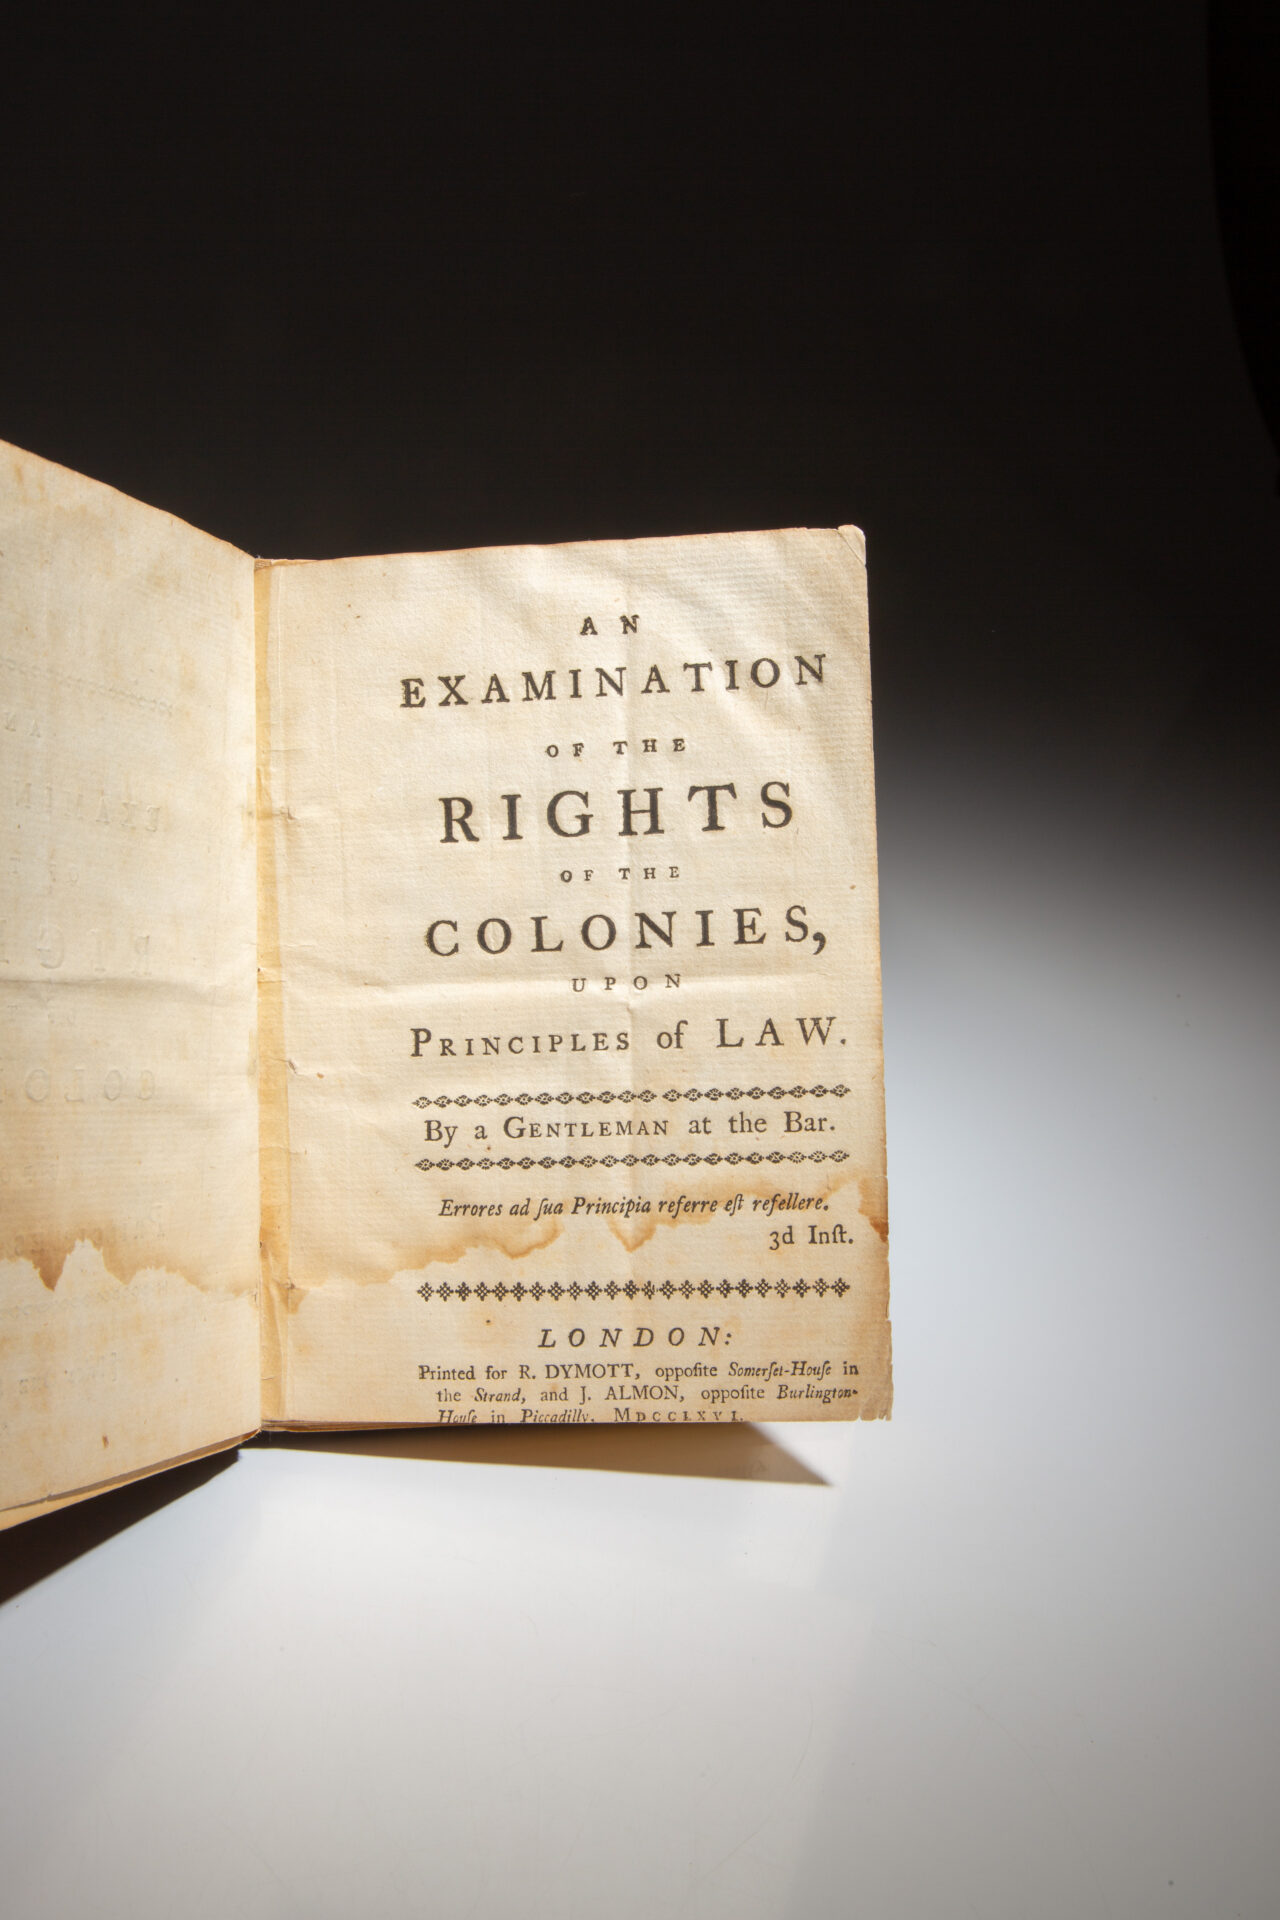 AN
EXAMINATION
OF THE
RIGHTS
OF THE
COLONIES,
UPON
PRINCIPLES of LAW.
By a GENTLEMAN at the Bar.
Errores ad ſua Principia referre eſt refellere.
3d Inſt.
LONDON:
Printed for R. DYMOTT, oppoſite Somerſet-Houſe in
the Strand, and J. ALMON, oppoſite Burlington-
Houſe in Piccadilly. MDCCLXVI.